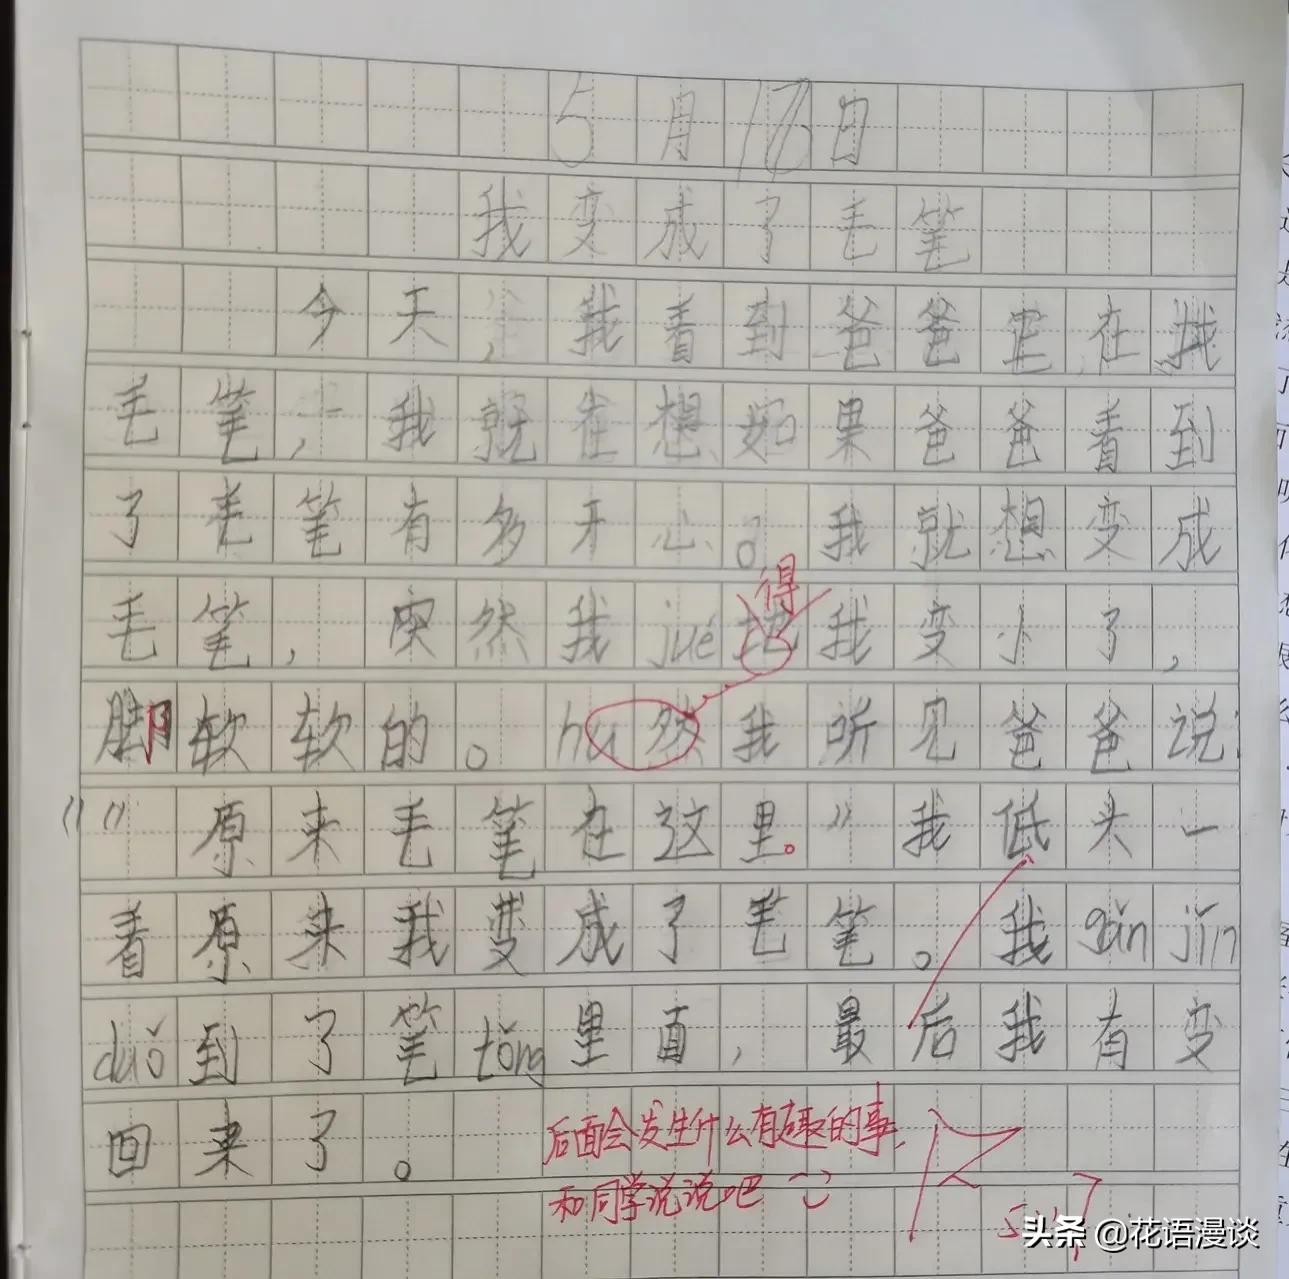 5月16日
我变成了毛笔
今天,我看到爸爸在找
毛笔,我就在想如果爸爸看到
了毛笔有多开心。我就想变成
毛笔,突然我jué地我变小了,
得
脚软软的。hu然我听见爸爸说:
"原来毛笔在这里。"我低头一
看原来我变成了毛笔。我gǎn jǐn
duǒ到了笔tǒng里面,最后我有变
回来了。
后面会发生什么有趣的事,
和同学说说吧
头条 @花语漫谈